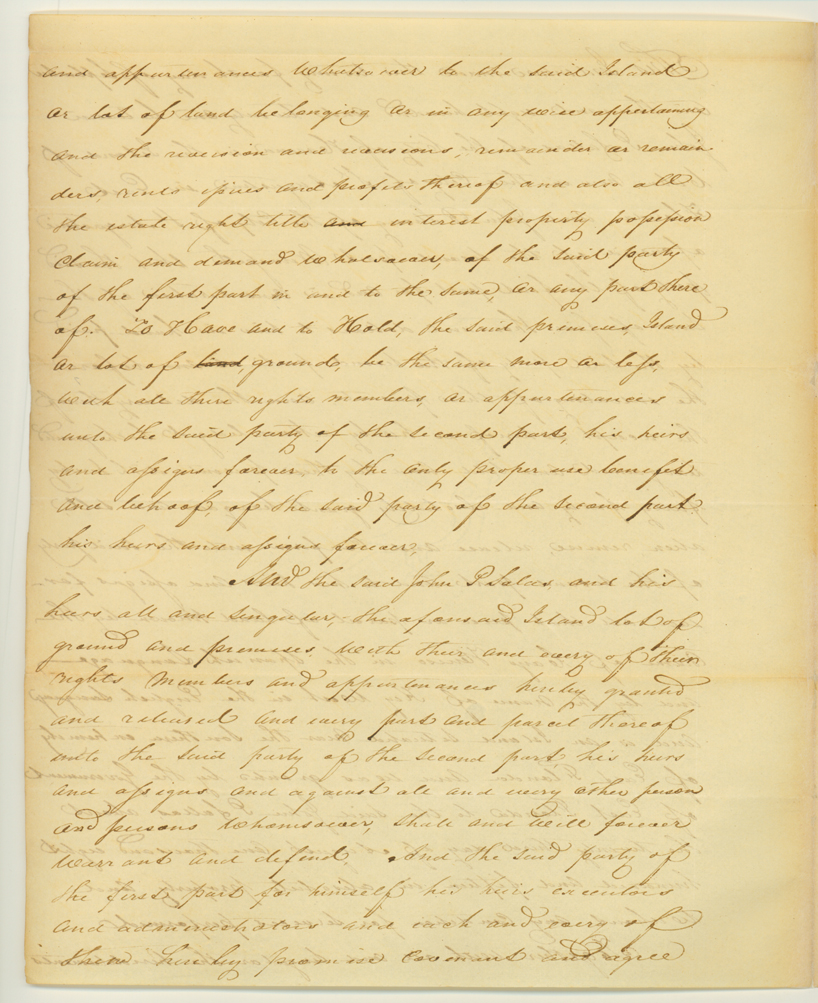 and appurtenances whatsoever to the said Island
or lot of land belonging or in any wise appertaining
and the reversion and reversions, remainder or remain-
ders, rents issues and profits thereof and also all
the estate right title and interest property possession
claim and demand whatsoever, of the said party
of the first part in and to the same, or any part there
of. To Have and to Hold, the said premises, Island
or lot of land ground, be the same more or less,
with all there rights members, or appurtenances
unto the said party of the second part, his heirs
and assigns forever, to the only proper use benefit
and behoof, of the said party of the second part
his heirs and assigns forever,
And the said John P Salas, and his
heirs all and singular, the aforesaid Island lot of
ground and premises, with their and every of their
rights members and appurtenances hereby granted
and released and every part and parcel thereof
unto the said party of the second part his heirs
and assigns and against all and every other person
and persons whomsoever, shall and will forever
warrant and defend. And the said party of
the first part for himself his heirs executors
and administrators and each and every of
them hereby promise covenant and agree